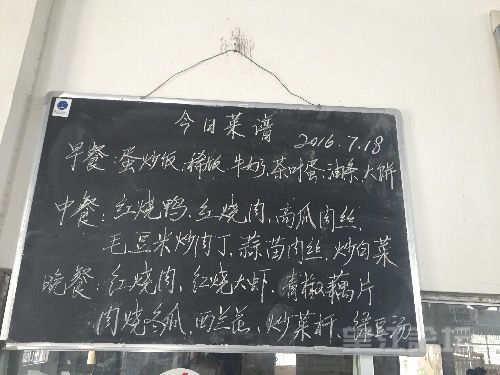 今日菜谱
2016.7.18
早餐:蛋炒饭.稀饭.牛奶.茶叶蛋.油条.大饼
中餐:红烧鸭.红烧肉,高瓜肉丝,
毛豆米炒肉丁,蒜苗肉丝,炒白菜
晚餐:红烧肉,红烧大虾,青椒藕片
肉烧冬瓜,西兰花,炒菜杆,绿豆汤